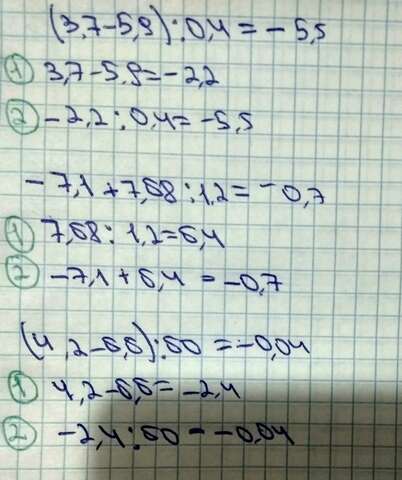 (3,7-5,9):0,4=-5,5
1) 3,7-5,9=-2,2
2) -2,2:0,4=-5,5
-7,1+7,68:1,2=-0,7
1) 7,68:1,2=6,4
2) -7,1+6,4=-0,7
(4,2-6,6):60=-0,04
1) 4,2-6,6=-2,4
2) -2,4:60=-0,04